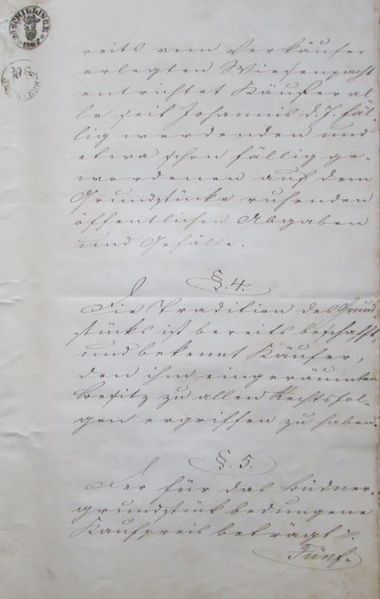 SCHILLINGE
reits vom Verkäufer
erlegten Wiesenpacht
entrichtet Käufer al-
le seit Johannis d. J. fäl-
lig werdenden und
etwa schon fällig ge-
wordenen auf dem
Grundstücke ruhenden
öffentlichen Abgaben
und Gefälle.
§. 4.
Die Tradition des Grund
stücks ist bereits beschafft,
und bekennt Käufer,
den ihm eingeräumten
Besitz zu allen Rechtsfol-
gen ergriffen zu haben.
§. 5.
Der für das Büdner-
grundstück bedungene
Kaufpreis beträgt
Fünf-